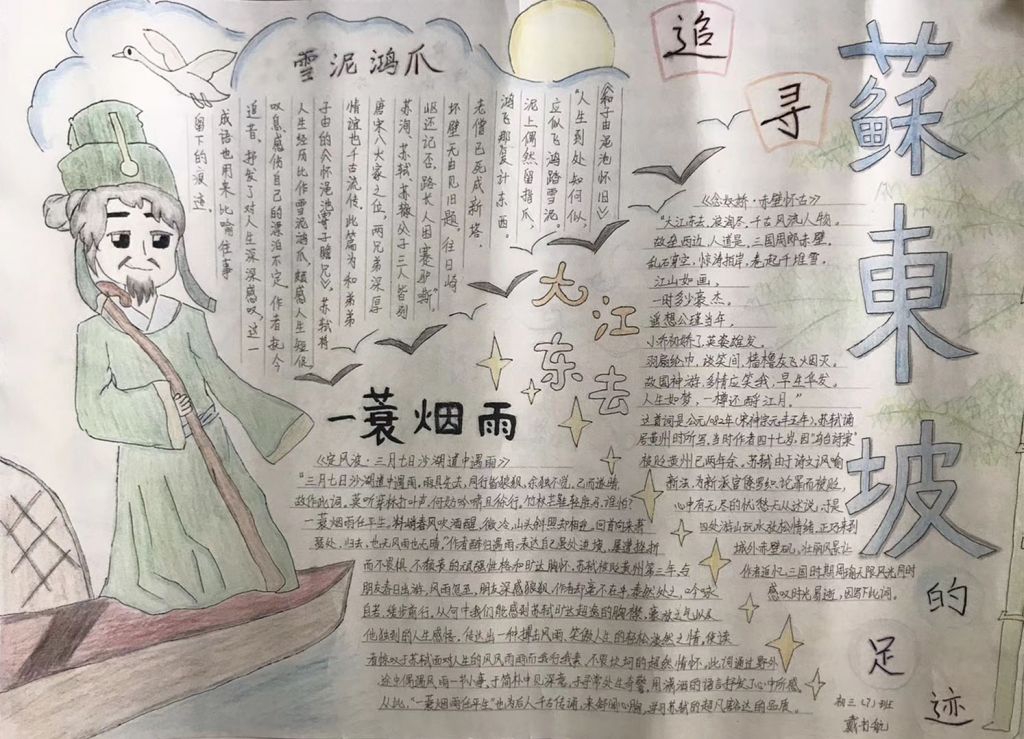 追
寻
蘇東坡
的
足
迹
雪泥鸿爪
《和子由渑池怀旧》
“人生到处知何似，
应似飞鸿踏雪泥。
泥上偶然留指爪，
鸿飞那复计东西。
老僧已死成新塔，
坏壁无由见旧题。往日崎
岖还记否，路长人困蹇驴嘶”
苏洵、苏轼、苏辙父子三人皆列
唐宋八大家之位，两兄弟深厚
情谊也千古流传，此篇为和弟弟
人生经历比作雪泥鸿爪，
叹息感伤自己的漂泊不定，作者抚今
追昔，抒发了对人生深深感叹，这一
成语也用来比喻往事
留下的痕迹。
大江
东去
《念奴娇·赤壁怀古》
“大江东去，浪淘尽，千古风流人物。
故垒西边，人道是，三国周郎赤壁。
乱石穿空，惊涛拍岸，卷起千堆雪。
江山如画，
一时多少豪杰。
遥想公瑾当年，
小乔初嫁了，英姿雄发。
羽扇纶巾，谈笑间，樯橹灰飞烟灭。
故国神游，多情应笑我，早生华发。
人生如梦，一樽还酹江月。”
这首词是公元1082年（宋神宗元丰五年），苏轼谪
居黄州时所写，当时作者四十七岁，因“乌台诗案”
被贬黄州已两年余。苏轼由于诗文讽喻
新法，为新派官僚罗织论罪而被贬，
心中有无尽的忧愁无从述说，于是
四处游山玩水放松情绪，正巧来到
城外赤壁矶，壮丽风景让
作者追忆三国时期周瑜无限风光同时
感叹时光易逝，因写下此词。
一蓑烟雨
《定风波·三月七日沙湖道中遇雨》
“三月七日沙湖道中遇雨，雨具先去，同行皆狼狈，余独不觉，已而遂晴，
故作此词。莫听穿林打叶声，何妨吟啸且徐行。竹杖芒鞋轻胜马，谁怕？
一蓑烟雨任平生。料峭春风吹酒醒，微冷，山头斜照却相迎。回首向来萧
瑟处，归去，也无风雨也无晴。”作者醉归遇雨，表达自己虽处逆境，屡遭挫折
而不畏惧、不颓丧的顽强性格和旷达胸怀。苏轼被贬黄州第三年，与
朋友春日出游，风雨忽至，朋友深感狼狈，作者却毫不在乎，泰然处之，吟咏
自若，缓步前行。从何中我们能感到苏轼旷达超逸的胸襟，豪放之气以及
他独到的人生感悟。传达出一种搏击风雨、笑傲人生的轻松豪迈之情，使读
者惊叹于苏轼面对人生的风风雨雨而我行我素、不畏坎坷的超然情怀。此词通过野外
途中偶遇风雨一事，于简朴中见深意，于寻常处生奇警，用潇洒的语言抒发了心中所感。
从此，“一蓑烟雨任平生”也为后人千古传诵，
初三（7）班